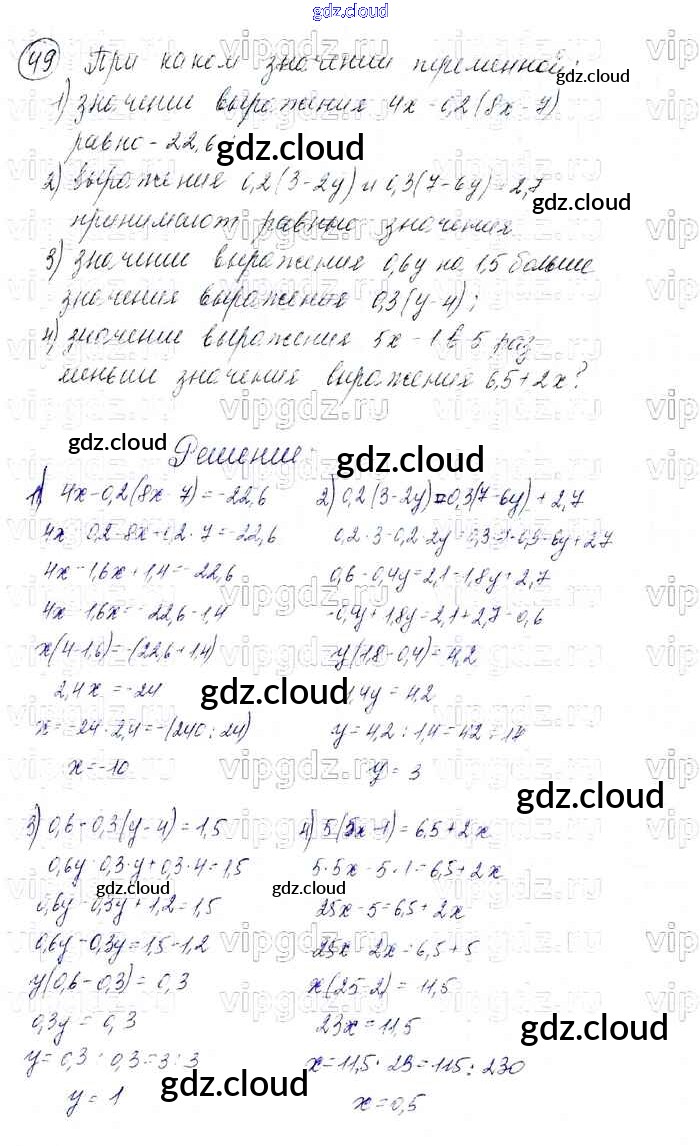 gdz.cloud
49 При каком значении переменной:
1) значение выражения 4x - 0,2(8x - 7)
равно - 22,6;
2) выражения 0,2(3-2y) и 0,3(7-6y) + 2,7
принимают равные значения
3) значение выражения 0,6y на 1,5 больше
значения выражения 0,3(y-4);
4) значение выражения 5x - 1 в 5 раз
меньше значения выражения 6,5+2x?
Решение:
1) 4x-0,2(8x-7)=-22,6
4x-0,2·8x-0,2·7=-22,6
4x-1,6x+1,4=-22,6
4x-1,6x=-22,6-1,4
x(4-1,6)=-(22,6+1,4)
2,4x=-24
x=-24:2,4=-(240:24)
x=-10
2) 0,2(3-2y)=0,3(7-6y)+2,7
0,2·3-0,2·2y=0,3·7-0,3·6y+2,7
0,6-0,4y=2,1-1,8y+2,7
-0,4y+1,8y=2,1+2,7-0,6
y(1,8-0,4)=4,2
1,4y=4,2
y=4,2:1,4=42:14
y=3
3) 0,6-0,3(y-4)=1,5
0,6y-0,3·y+0,3·4=1,5
0,6y-0,3y+1,2=1,5
0,6y-0,3y=1,5-1,2
y(0,6-0,3)=0,3
0,3y=0,3
y=0,3:0,3=3:3
y=1
4) 5(5x-1)=6,5+2x
5·5x-5·1=6,5+2x
25x-5=6,5+2x
25x-2x=6,5+5
x(25-2)=11,5
23x=11,5
x=11,5:23=115:230
x=0,5